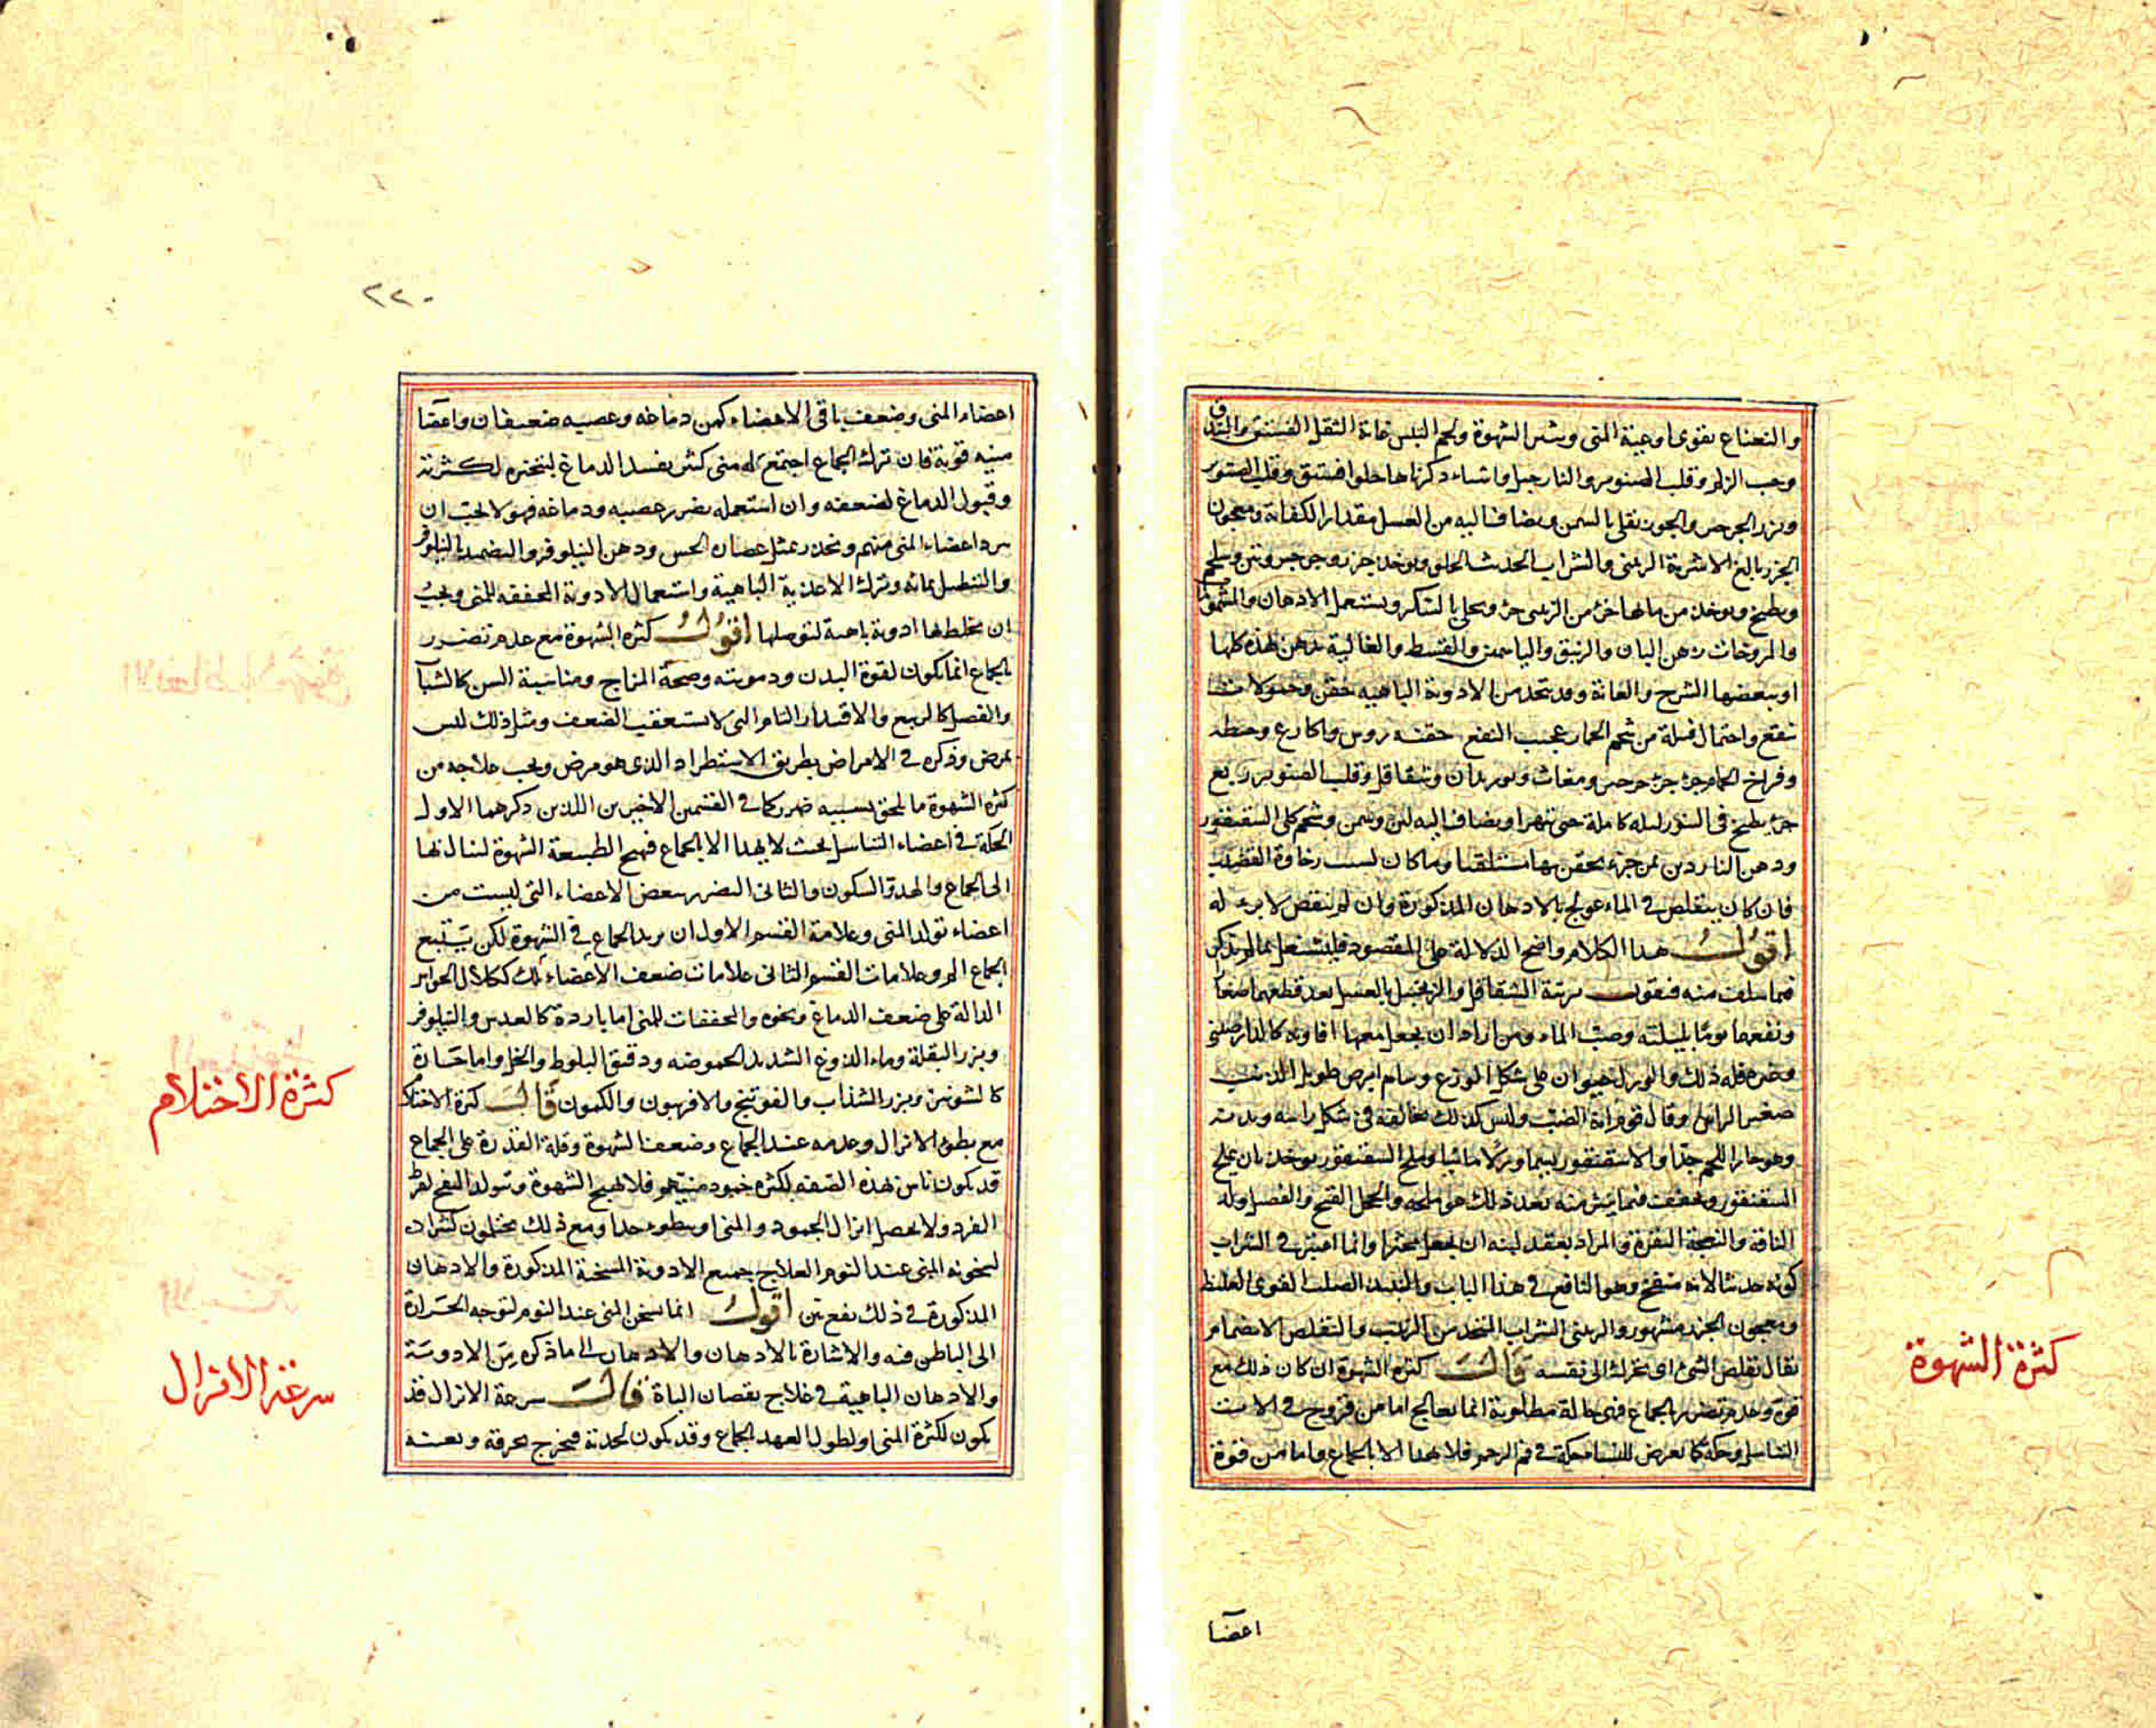 والنعناع يقوى اوعية المنى ويثير الشهوة ولحم البلبس غاية النقل الفستق والبندق
وحب الزلم وقلب الصنوبر والنارجيل واشياء ذكرناها حلوا فستق وقلب الصنوبر
وبزر الجرجير والجوز يقلى بالسمن ويضاف اليه من العسل مقدار الكفاية ومعجون
الجزر بالغ الاشربة الزبيبى والشراب الحديث الحلو ويوخذ جزر وجرجير وتين وسلجم
ويطبخ ويوخذ من مائها جزء من الزبيبى جزء ويحلى بالسكر ويستعمل الادهان والمشمومات
والمروخات دهن البان والزنبق والياسمين والقسط والغالية يدهن بهذه كلها
او ببعضها الشرج والعانة وقد يتخذ من الادوية الباهية حقن وحمولات
ينتفع واحتمال فتيلة من شحم الحمار عجيب النفع حقنة روس واكارع وحنطة
وفراخ الحمام جزء جزء جرجير ومغاث وبوزيدان وشقاقل وقلب الصنوبر ربع
جزء يطبخ في التنور ليلة كاملة حتى يتهرا ويضاف اليه لبن وسمن وشحم كلى السقنقور
ودهن الناردين ثمن جزء يحقن بها مستلقيا وما كان لسبب رخاوة القضيب
فان كان يتقلص في الماء عولج بالادهان المذكورة وان لم يتقلص لا برء له
اقول هذا الكلام واضح الدلالة على المقصود فلنشتغل بما لم يذكر
فيما سلف منه فنقول مربة الشقاقل والزنجبيل بالعسل بعد قطعهما صغارا
ونقعهما يوما بليلته وصب الماء ومن اراد ان يجعل معها افاويه كالدارصينى
وغيره فله ذلك والورل حيوان على شكل الوزغ وسام ابرص طويل الذنب
صغير الراس وقال قوم انه الضب وليس كذلك مخالفته في شكل راسه وبدنه
وهو حار اللحم جدا والاسقنقور يسمى ورلا مائيا وملح السقنقور يوخذ بان يملح
السقنقور ويجفف فما ينثر منه بعد ذلك هو ملحه
كونه حديثا لانه منفخ وهو النافع في هذا الباب والنبيذ الصلب القوى الغليظ
ومعجون الجزر مشهور والزبيبى الشراب المتخذ من الزبيب والتقلص الانضمام
يقال تقلص الشئ اى تحرك الى نفسه قال كثرة الشهوة ان كان ذلك مع
قوة وعدم تضرر بالجماع فهى حالة مطلوبة انما يعالج اما من قروح في الات
التناسل وحكة كما يعرض للنساء حكة في فم الرحم فلا يهدا الا بالجماع واما من قوة
اعضا
كثرة الشهوة
٢٢٠
اعضاء المنى وضعف باقى الاعضاء كمن دماغه وعصبه ضعيفان واعضا
منيه قوية فان ترك الجماع اجتمع له منى كثير يفسد الدماغ لتبخيره لكثرته
وقبول الدماغ لضعفه وان استعمله يضرر عصبه ودماغه فهولا يجب ان
يبرد اعضاء المنى منهم ويخدر بمثل عصارة الخس ودهن النيلوفر والتضميد بالنيلوفر
والتنطيل بمائه وترك الاغذية الباهية واستعمال الادوية المجففة للمنى ويجب
ان يخلط بها ادوية باهية لتوصلها اقول كثرة الشهوة مع عدم تضرر
بالجماع انما تكون لقوة البدن ودمويته وصحة المزاج ومناسبة السن كالشباب
والفصل كالربيع والاقتدار التام التى لا تستعقب الضعف ومثل ذلك ليس
بمرض وذكره في الامراض بطريق الاستطراد الذى هو مرض ويجب علاجه من
كثرة الشهوة ما يلحق بسببه ضرر كما في القسمين الاخيرين اللذين ذكرهما الاول
الحكة في اعضاء التناسل بحيث لا يهدا الا بالجماع فهيج الطبيعة الشهوة لينال بها
الى الجماع والهدو السكون والثانى التضرر ببعض الاعضاء التى ليست من
اعضاء تولد المنى وعلامة القسم الاول ان يزيد الجماع في الشهوة لكن يستتبع
الجماع الم وعلامات القسم الثانى علامات ضعف الاعضاء تلك ككلال الحواس
الدالة على ضعف الدماغ ونحوه والمجففات للمنى اما باردة كالعدس والنيلوفر
وبزر البقلة وماء الدوغ الشديد الحموضة ودقيق البلوط والخل واما حارة
كالشونيز وبزر السذاب والفوتنج والافربيون والكمون قال كثرة الاحتلام
مع بطوء الانزال وعدمه عند الجماع وضعف الشهوة وقلة القدرة على الجماع
قد يكون ناس بهذه الصفة لكثرة خمود منيهم فلا يهيج الشهوة وتولد النفخ لفرط
البرد ولا يحصل انزال لجمود المنى او بطوء جدا ومع ذلك يحتلمون كثيرا
لسخونة المنى عند النوم العلاج جميع الادوية المسخنة المذكورة والادهان
المذكورة في ذلك نفع بين اقول انما يسخن المنى عند النوم لتوجه الحرارة
الى الباطن فيه والاشارة بالادهان والادهان الى ما ذكره من الادوية
والادهان الباهية في علاج نقصان الباه قال سرعة الانزال قد
يكون لكثرة المنى او لطول العهد بالجماع وقد يكون لحدته فيخرج بحرقة ويعينه
كثرة الاحتلام
سرعة الانزال